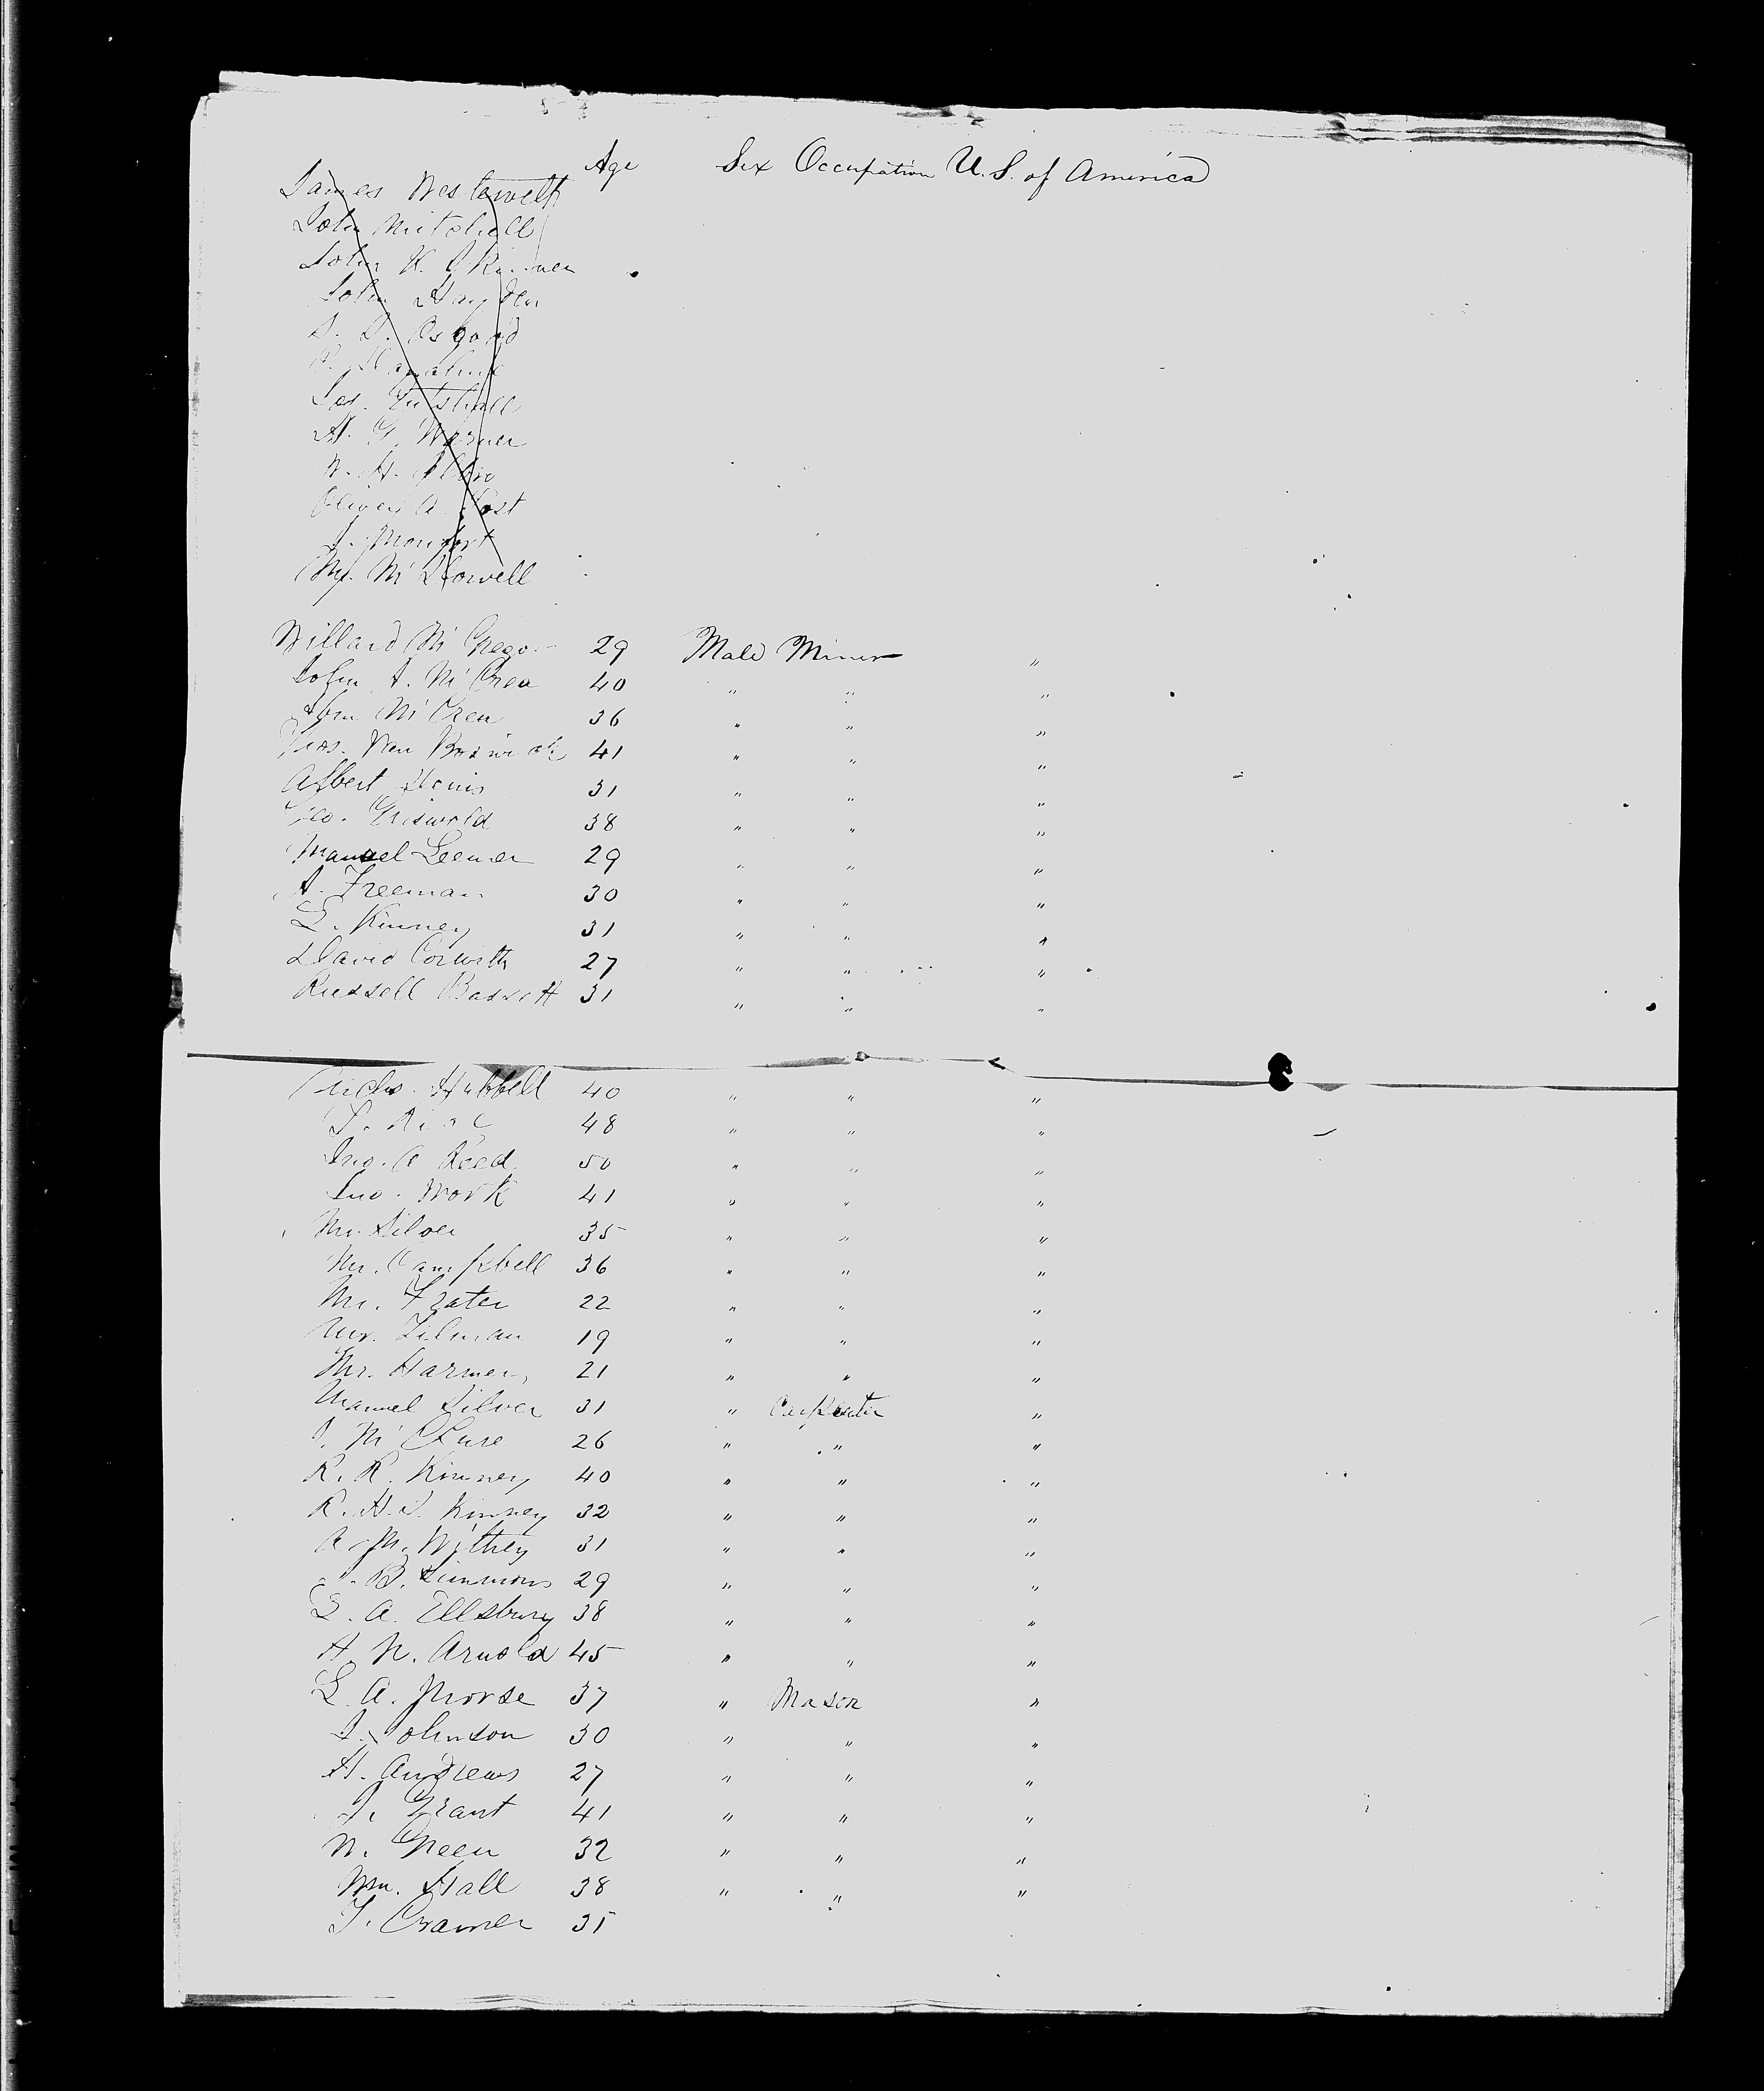 Age Sex Occupation U. S. of America
James Westervelt
John Mitchell
John K. Skinner
John Hayden
Osgood
Jos.
H. G. Warner
W. H.
Oliver A. Post
J. Monfort
Mr. McDowell
Willard McGregor 29 Male Miner "
John A. McCrea 40 " " "
McCrea 36 " " "
Van 41 " " "
Albert Denis 31 " " "
Geo. Griswold 38 " " "
Manuel Leemer 29 " " "
A. Freeman 30 " " "
L. Kinney 31 " " "
David Corwith 27 " " "
Russell Bassett 31 " " "
Hubbell 40 " " "
48 " " "
Jno. A Reed 50 " " "
Jno. Mork 41 " " "
Mr. Silver 35 " " "
Mr. Campbell 36 " " "
Mr. Frater 22 " " "
Mr. Tilman 19 " " "
Mr. Harmer 21 " " "
Manuel Silver 31 " Carpenter "
J. McClure 26 " " "
R. R. Kinney 40 " " "
R. H. J. Kinney 32 " " "
A. M. Withey 31 " " "
B. Simmons 29 " " "
L. A. Ellsbury 38 " " "
H. N. Arnold 45 " " "
L. A. Morse 37 " Mason "
J. Johnson 30 " " "
H. Andrews 27 " " "
J. Grant 41 " " "
N. Green 32 " " "
Wm. Hall 38 " " "
T. Cramer 35